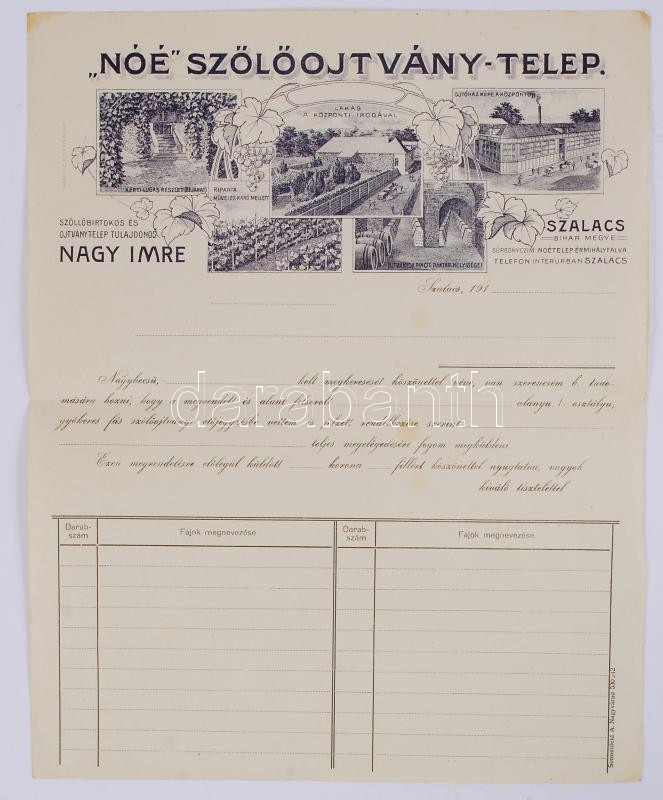 „NÓÉ” SZŐLŐOJTVÁNY-TELEP.
LAKÁS
A KÖZPONTI IRODÁVAL
OJTÓHÁZ KÉPE A KÖZPONTON
KERTI LUGAS RÉSZLET (BEJÁRAT)
RIPARIA
MŰVELÉS KARÓ MELLETT
SZŐLLŐBIRTOKOS ÉS
OJTVÁNYTELEP TULAJDONOS
NAGY IMRE
SZALACS
BIHAR MEGYE
SÜRGÖNYCZIM: NOÉTELEP ÉRMIHÁLYFALVA
TELEFON INTERURBAN SZALACS
Szalacs, 191
Nagybecsű, kelt megkeresését köszönettel véve, van szerencsém b. tudo-
mására hozni, hogy a megrendelt és alant felsorolt alanyu I. osztályu,
gyökeres fás szőlőojtványt előjegyzésbe vettem és nézett rendelkezése szerint
teljes megelégedésére fogom megküldeni.
Ezen megrendelésre előlegül küldött korona fillért köszönettel nyugtatva, vagyok
kiváló tisztelettel
Darab-
szám
Fajok megnevezése
Darab-
szám
Fajok megnevezése
Sonnenfeld A. Nagyvárad 530 :12
darabanth